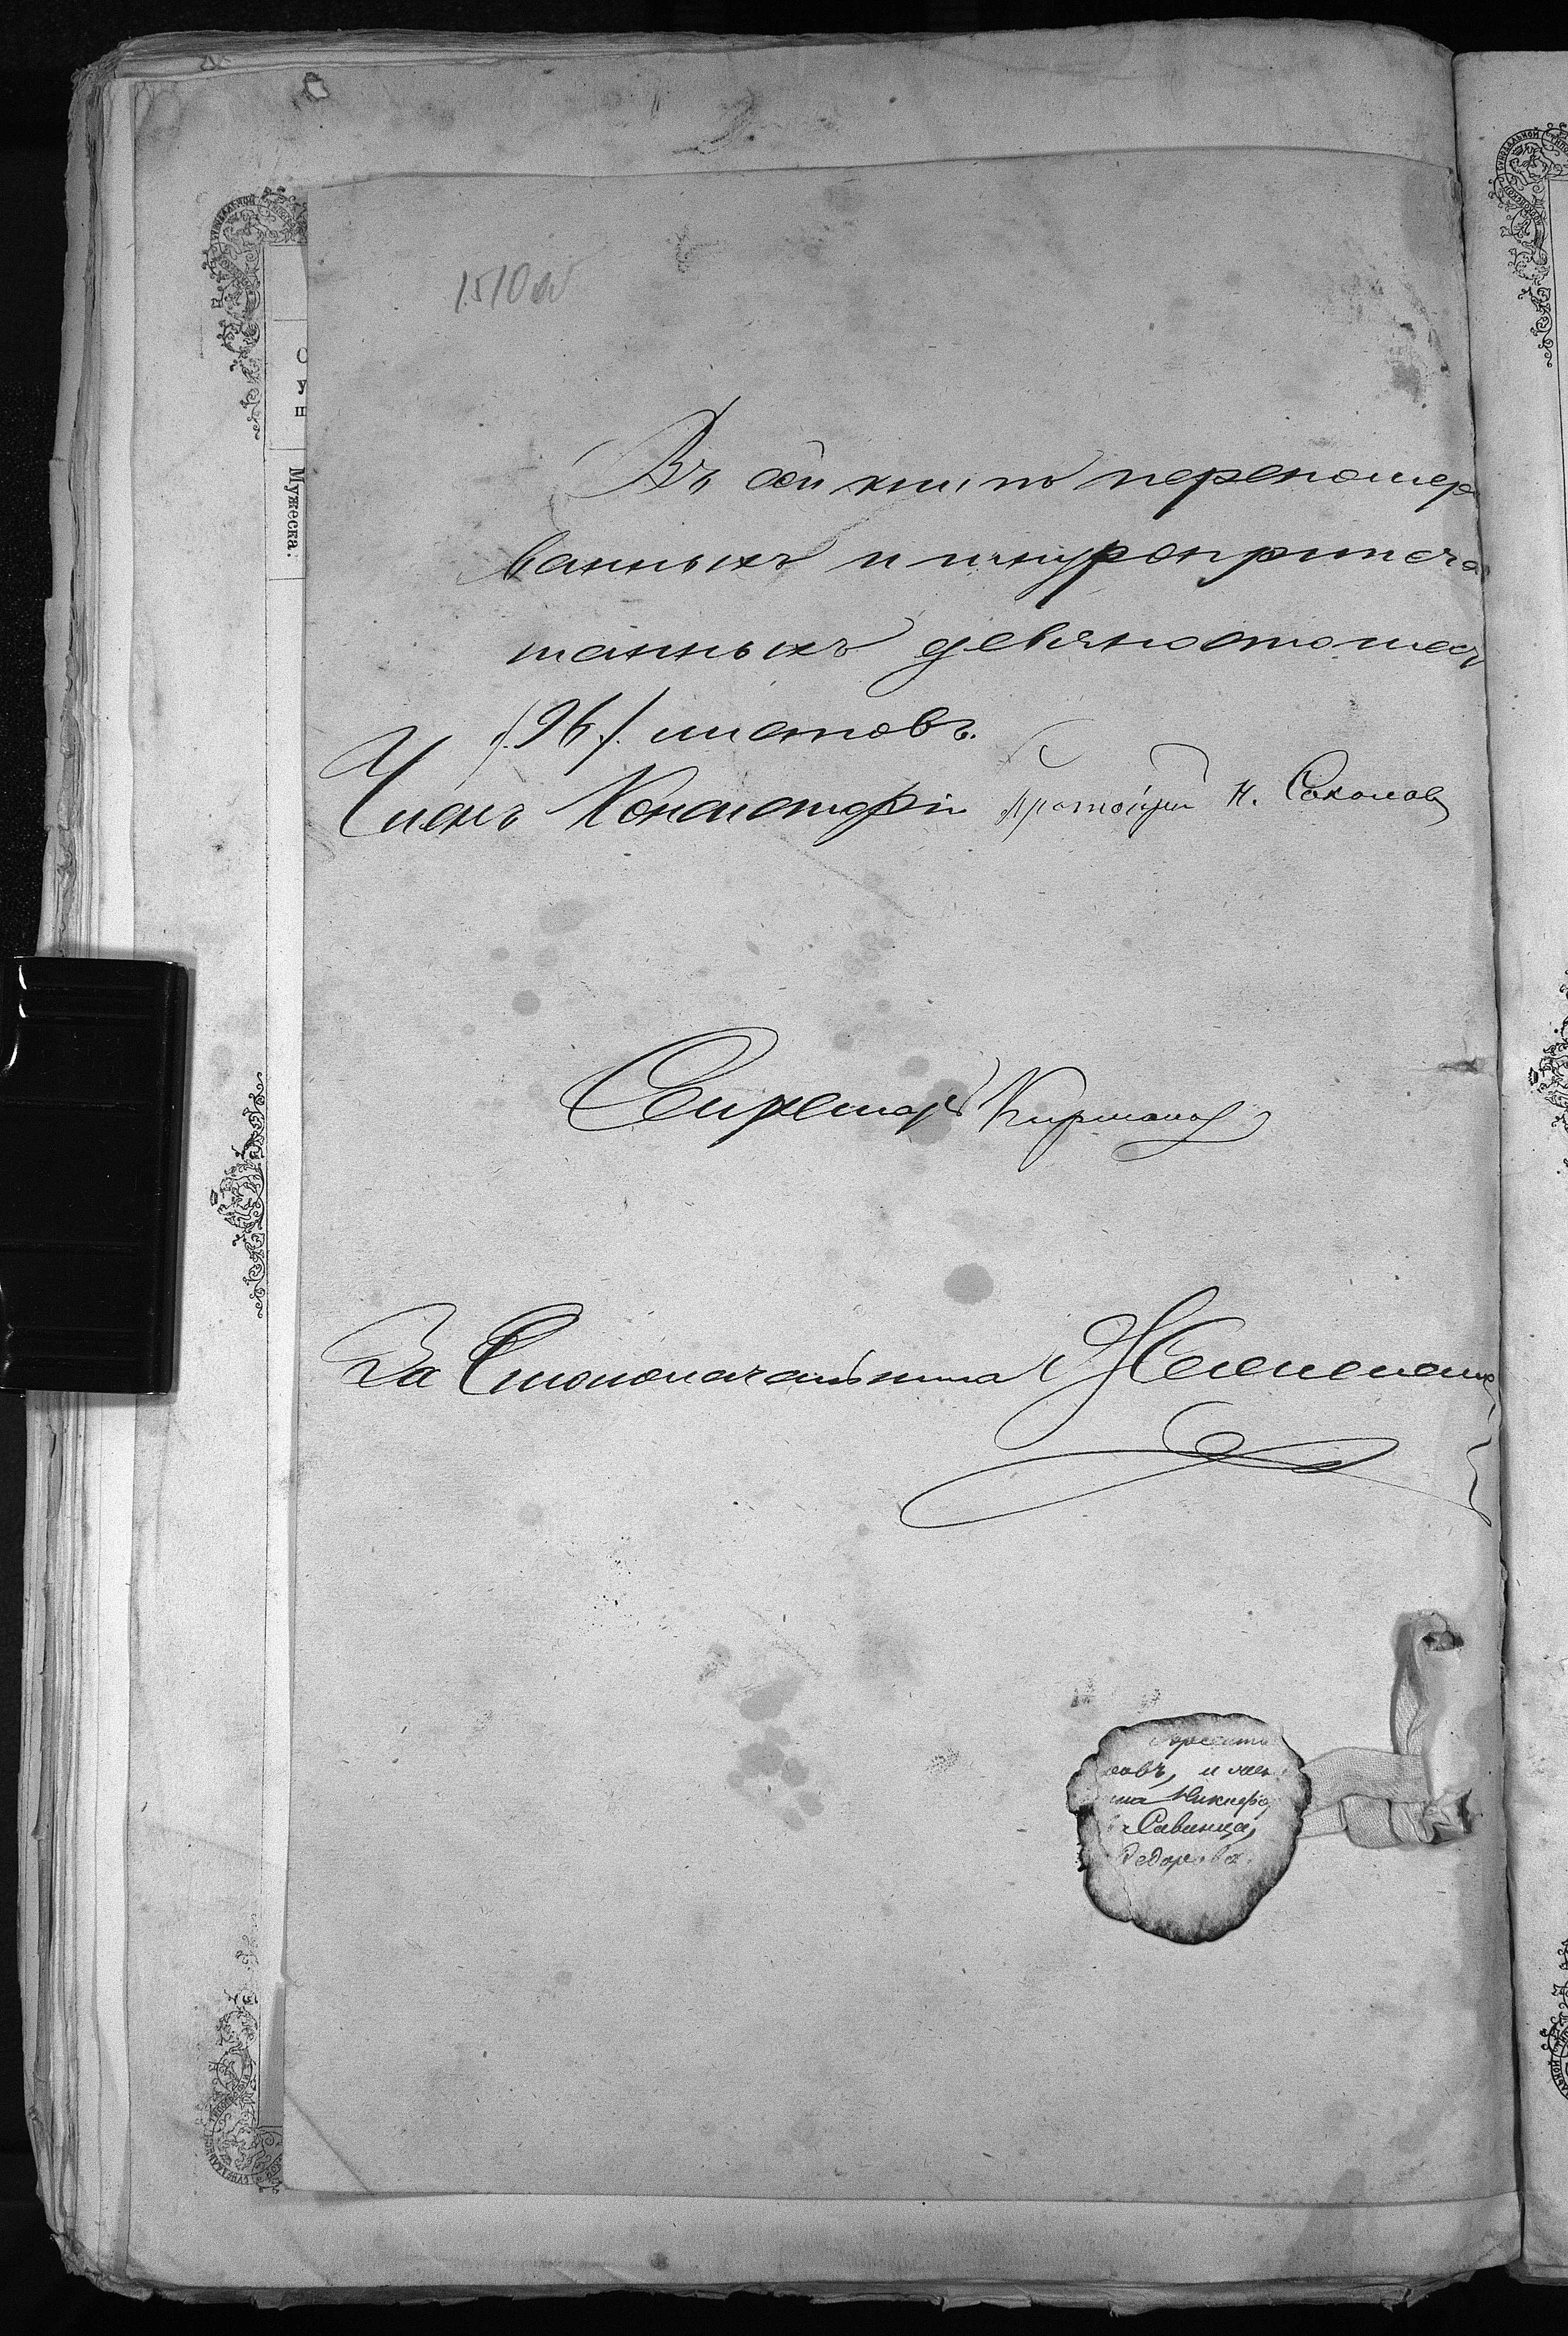 1510 об
Въ сей книгѣ переномеро
ванныхъ и шнуроприпеча
танныхъ девяностошест
/.96./. листовъ.
Членъ Консисторіи Протоіерей Н. Соколовъ
Секретарь
За Столоначальника
Мужеска.
овъ, и
Никифо
Савинца,
Федорова.